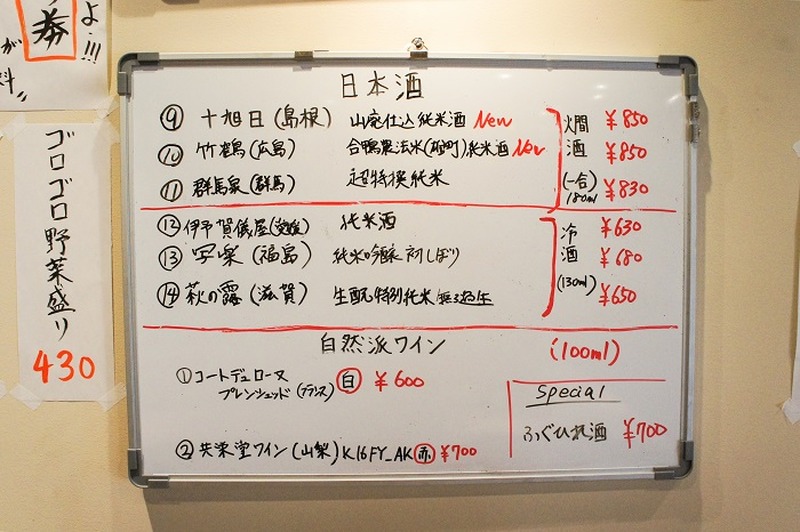 よ!!!
券
が
料
ゴロゴロ野菜盛り
430
日本酒
⑨ 十旭日(島根) 山廃仕込純米酒 New ¥850
⑩ 竹鶴(広島) 合鴨農法米(雄町)純米酒 New ¥850
⑪ 群馬泉(群馬) 超特撰純米 ¥830
燗酒
(一合)
180ml
⑫ 伊予賀儀屋(愛媛) 純米酒 ¥630
⑬ 写楽(福島) 純米吟醸 初しぼり ¥680
⑭ 萩の露(滋賀) 生酛特別純米 無ろ過生 ¥650
冷酒
(130ml)
自然派ワイン (100ml)
① コートデュローヌ
プレンシェッド(フランス) 白 ¥600
② 共栄堂ワイン(山梨) K16FY_AK 赤 ¥700
Special
ふぐひれ酒 ¥700